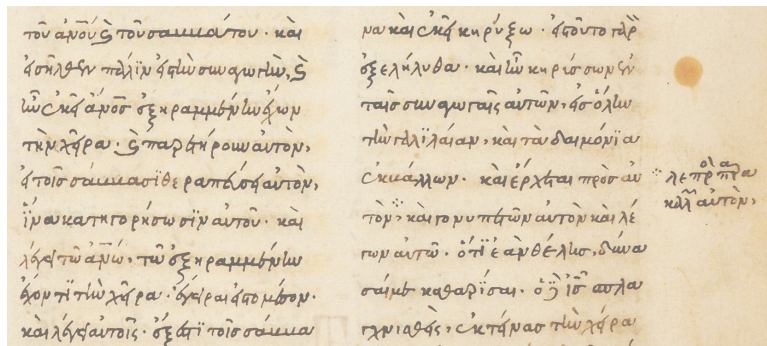 τοῦ ἀνοῦ ϛ τοῦ σαββάτου · καὶ
εἰσῆλθεν πάλϊν εἰς τὴν συναγωγὴν, ϛ
ἦν ἐκεῖ ἄνος ἐξηραμμένην ἔχων
τὴν χεῖρα · ϛ παρετήρουν αὐτὸν,
εἰ τοῖς σάββασϊ θεραπεύσει αὐτὸν,
ἵνα κατηγορήσωσϊν αὐτοῦ · καὶ
λέγει τῶ ἀνώ, τῶ ἐξηραμμένην
ἔχοντϊ τὴν χεῖρα · ἔγειραι εἰς τὸ μέσον ·
καὶ λέγει αὐτοῖς · ἔξεστϊ τοῖς σάββα
να καὶ ἐκεῖ κηρύξω · εἰς τοῦτο γὰρ
ἐξελήλυθα · καὶ ἦν κηρύσσων ἐν
ταῖς συναγωγαῖς αὐτῶν, εἰς ὅλην
τὴν γαλϊλαίαν, καὶ τὰ δαιμόνϊα
ἐκβάλλων · καὶ ἔρχεται πρὸς αὐ
τὸν, καὶ γονυπετῶν αὐτὸν καὶ λέ
γων αὐτῶ · ὅτϊ ἐὰν θέλης, δύνα
σαί με καθαρΐσαι · ὁ δὲ ἰς σπλα
γχνισθεὶς, ἐκτείνας τὴν χεῖρα
λεπρὸς παρα
καλῶν αὐτὸν,